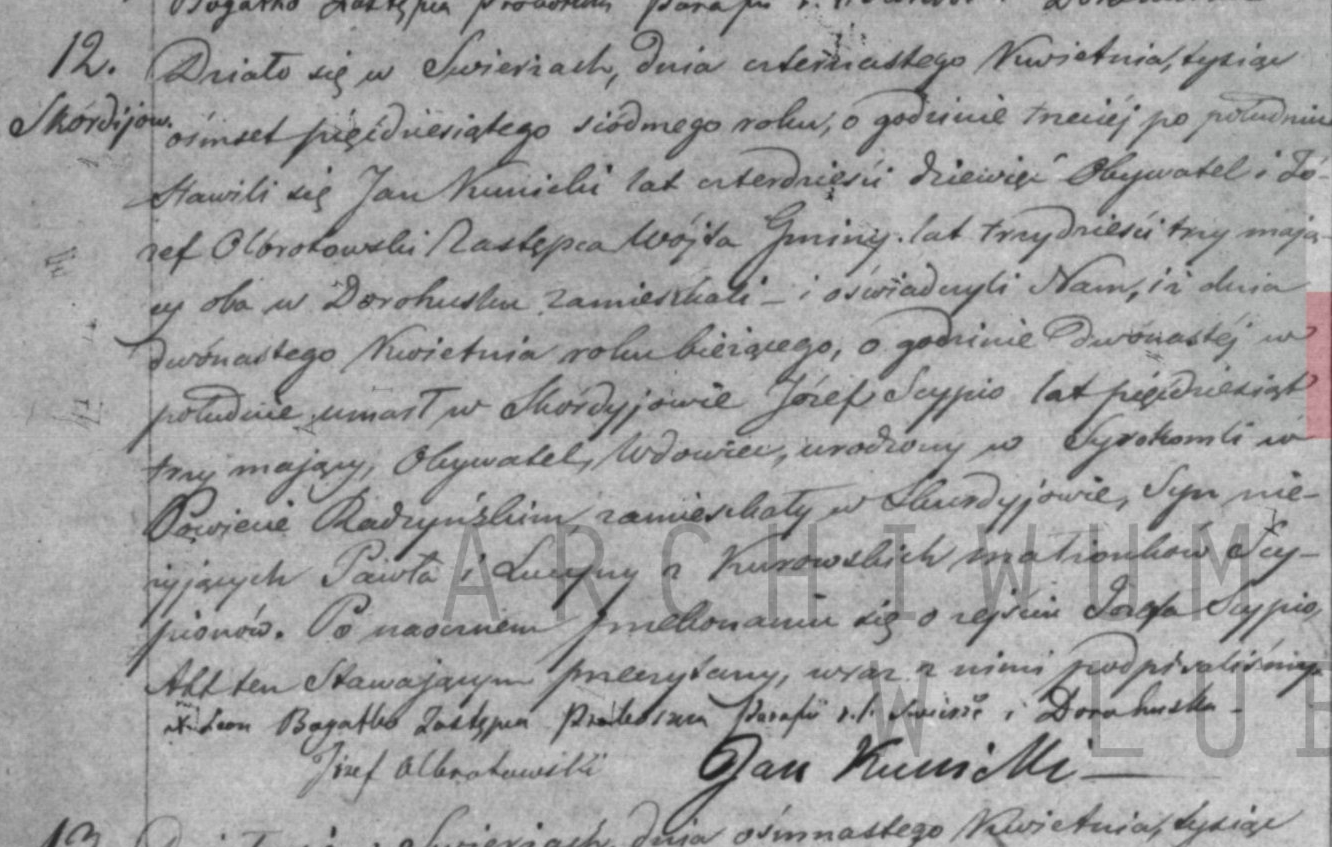 12.
Skórdijów.
Działo się w Swierżach, dnia czternastego Kwietnia, tysiąc
ośmset pięćdziesiątego siódmego roku, o godzinie trzeciéj po południu
Stawili się Jan Kunicki lat czterdzieści dziewięć Obywatel i Jó-
zef Olbrotowski Zastępca Wójta Gminy lat trzydzieści trzy mają-
cy oba w Dorohusku zamieszkali – i oświadczyli Nam, iż dnia
dwónastego Kwietnia roku bieżącego, o godzinie dwónastéj w
południe umarł w Skórdyjowie Józef Scypio lat pięćdziesiąt
trzy mający, Obywatel, Wdowiec, urodzony w Syrokomli w
Powiecie Radzyńskim zamieszkały w Skurdyjowie, Syn nie-
żyjących Pawła i Lucyny z Kurowskich małżonków Scy-
pionów. Po naocznem przekonaniu się o zejściu Józefa Scypio,
Akt ten Stawającym przeczytany, wraz z nimi podpisaliśmy
X. Leon Bogatko Zastępca Proboszcza Parafii r. l. Swierże i Dorohuska –
Józef Olbrotowski Jan Kunicki
13. Działo się w Swierżach, dnia ośmnastego Kwietnia, tysiąc
ARCHIWUM
W LUB